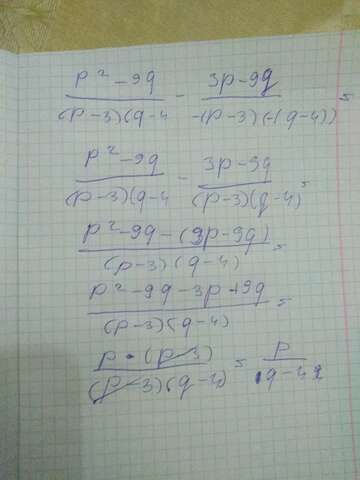 p² - 9q / (p-3)(q-4 - 3p-9q / -(p-3)(-(q-4)) =
p² - 9q / (p-3)(q-4 - 3p-9q / (p-3)(q-4) =
p² - 9q - (3p-9q) / (p-3)(q-4) =
p² - 9q - 3p + 9q / (p-3)(q-4) =
p · (p-3) / (p-3)(q-4) = p / q-4